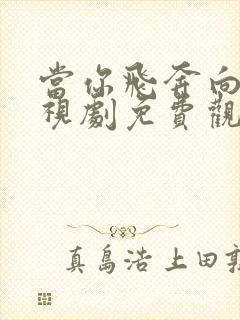 當你飛奔向
視劇免費觀
真島浩 上田敦